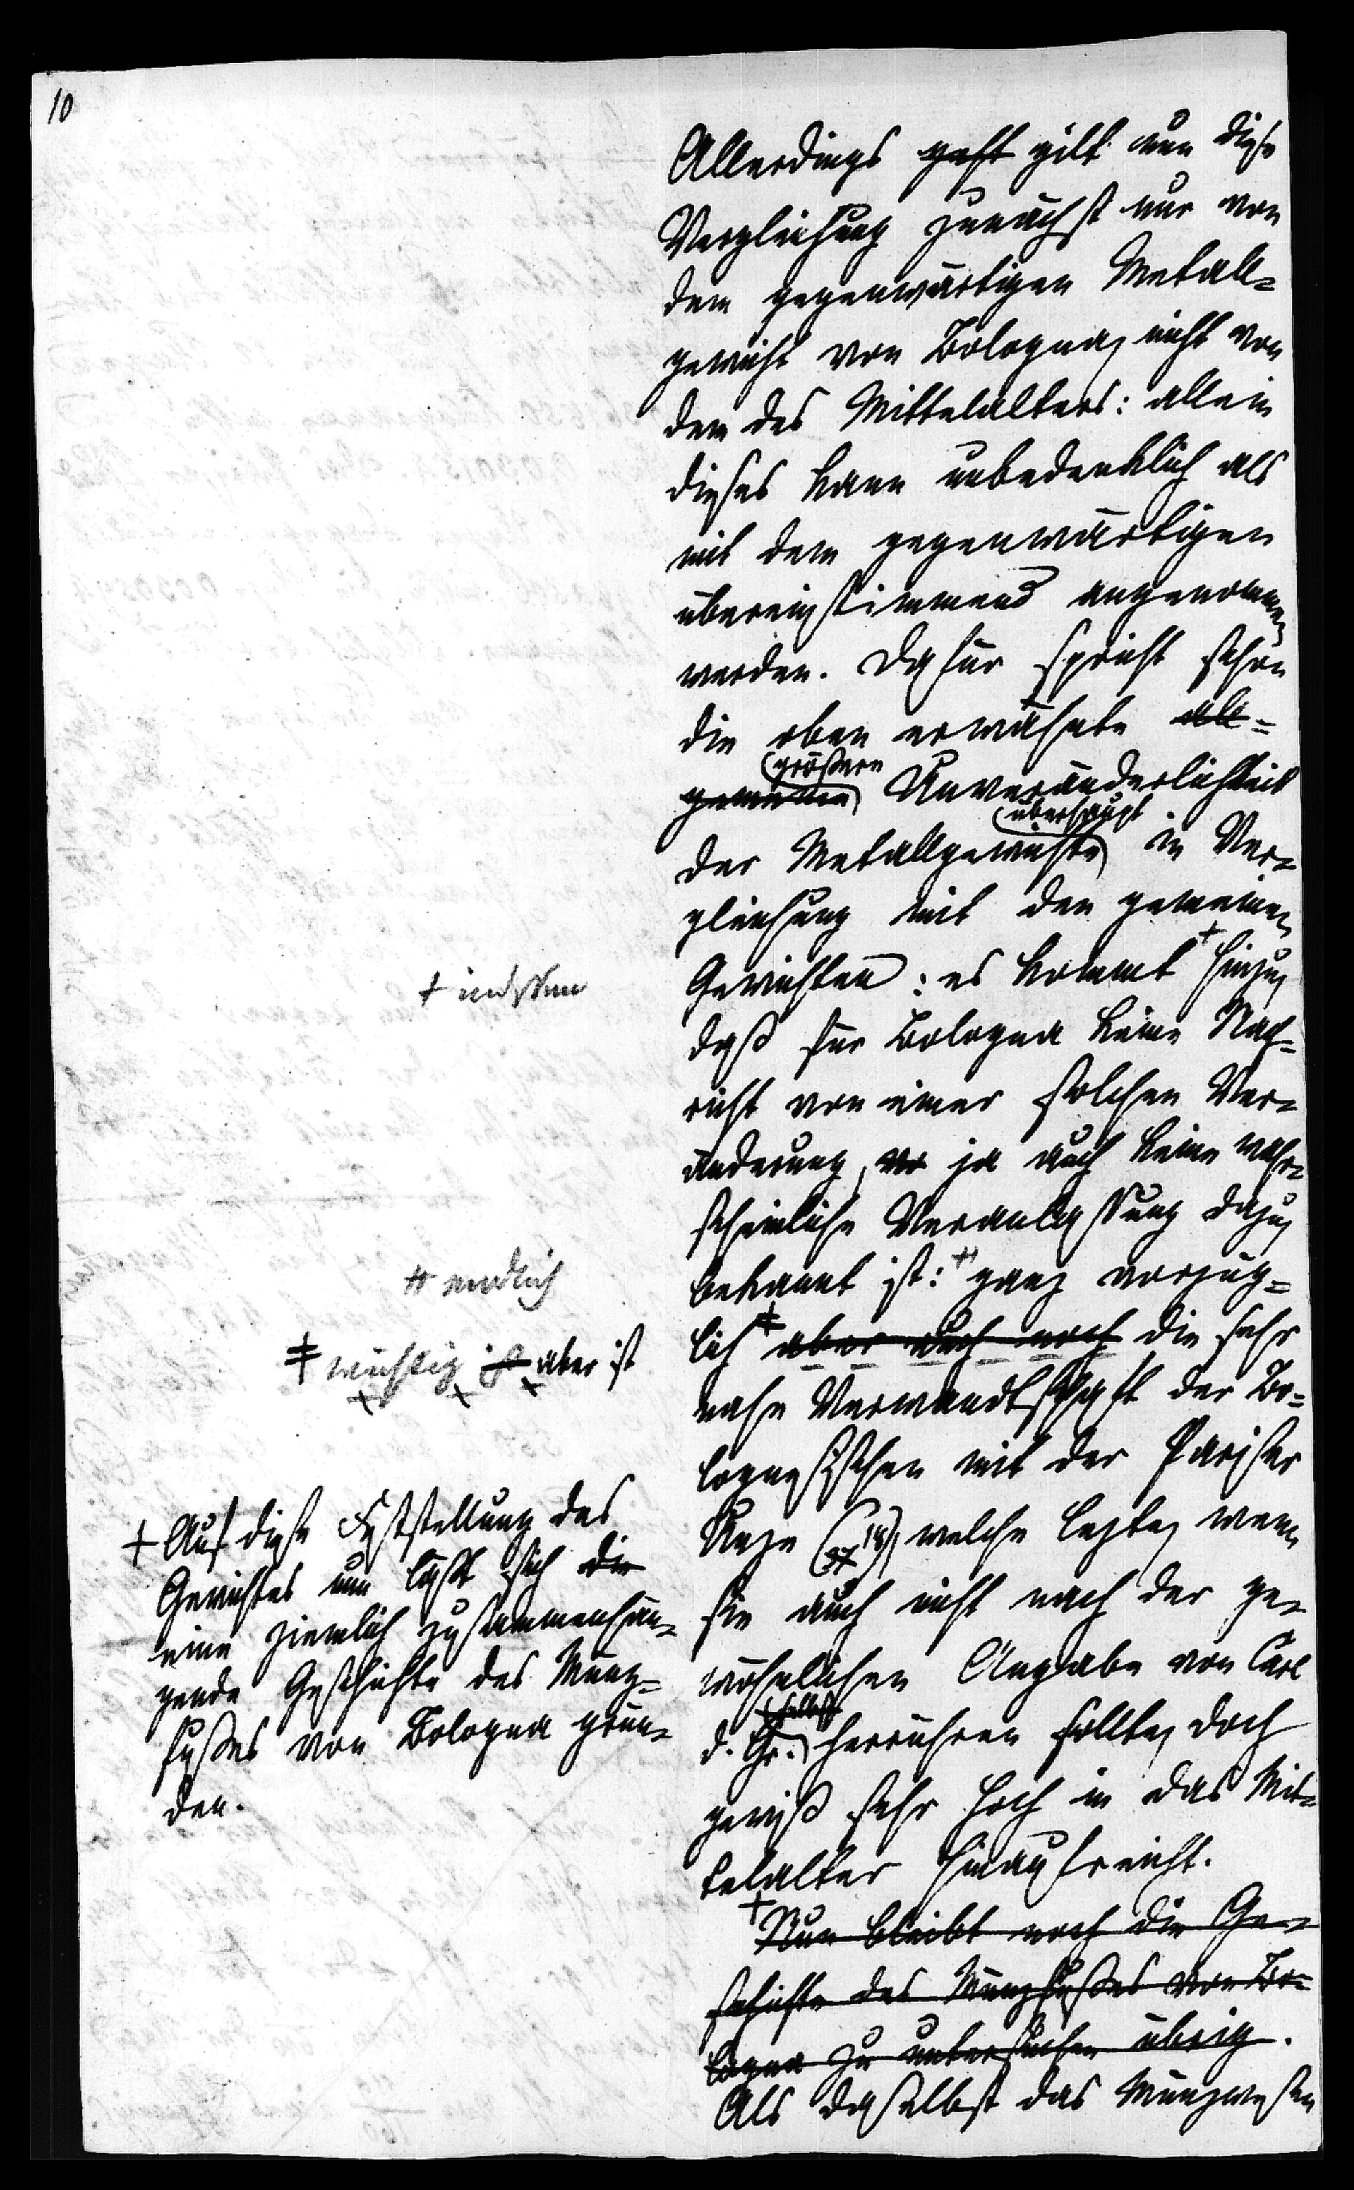 10
Allerdings geht gilt nun diese
Vergleichung zunächst nur von
dem gegenwärtigen Metall=
gewicht von Bologna, nicht von
dem des Mittelalters: allein
dieses kann unbedenklich als
mit dem gegenwärtigen
übereinstimmend angenommen
werden. Dafür spricht schon
die oben erwähnte all=
größere
gemeine Unveränderlichkeit
überhaupt
der Metallgewichte in Ver=
gleichung mit den gemeinen
Gewichten: es kommt + hinzu,
+ indessen
daß für Bologna keine Nach=
richt von einer solchen Ver=
änderung, ja auch keine wahr=
scheinliche Veranlassung dazu,
bekannt ist: ++ ganz vorzüg=
++ endlich
lich ‡ aber auch noch die sehr
‡ wichtig ist aber ist
nahe Verwandtschaft der Bo=
lognesischen mit der Pariser
Unze (37 18), welche letzte, wenn
sie auch nicht nach der ge=
wöhnlichen Angabe von Carl
selbst
d. Gr. herrühren sollte, doch
gewiß sehr hoch in das Mit=
telalter hinaufreicht.
+ Nun bleibt noch die Ge=
schichte des Münzfußes von Bo=
logna zu untersuchen übrig.
Als daselbst das Münzwesen
+ Auf diese Feststellung des
Gewichtes nun läßt sich die
eine ziemlich zusammenhän=
gende Geschichte des Münz=
fußes von Bologna grün=
den.